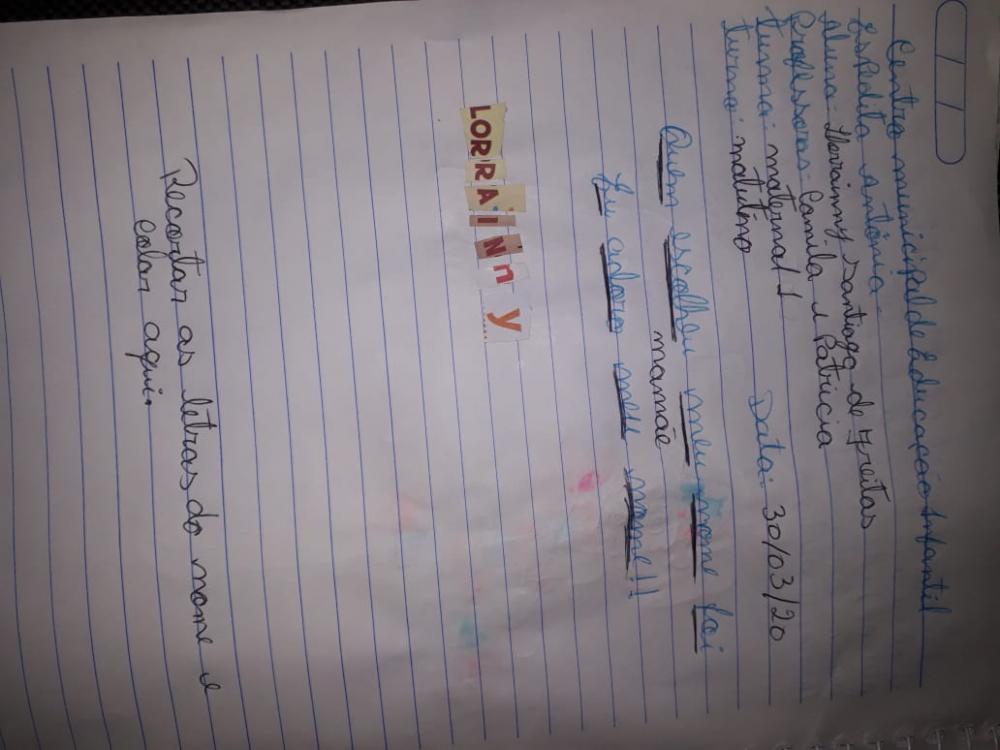 Centro municipal de Educação Infantil
Espedita antônia
aluna- Lorrainny Santiago de Freitas
Professoras- Camila e Patricia
turma: maternal 1 Data: 30/03/20
turno: matutino
Quem escolheu meu nome foi
mamãe
Eu adoro meu nome!!
LORRAiNny
Recortar as letras do nome e
colar aqui.